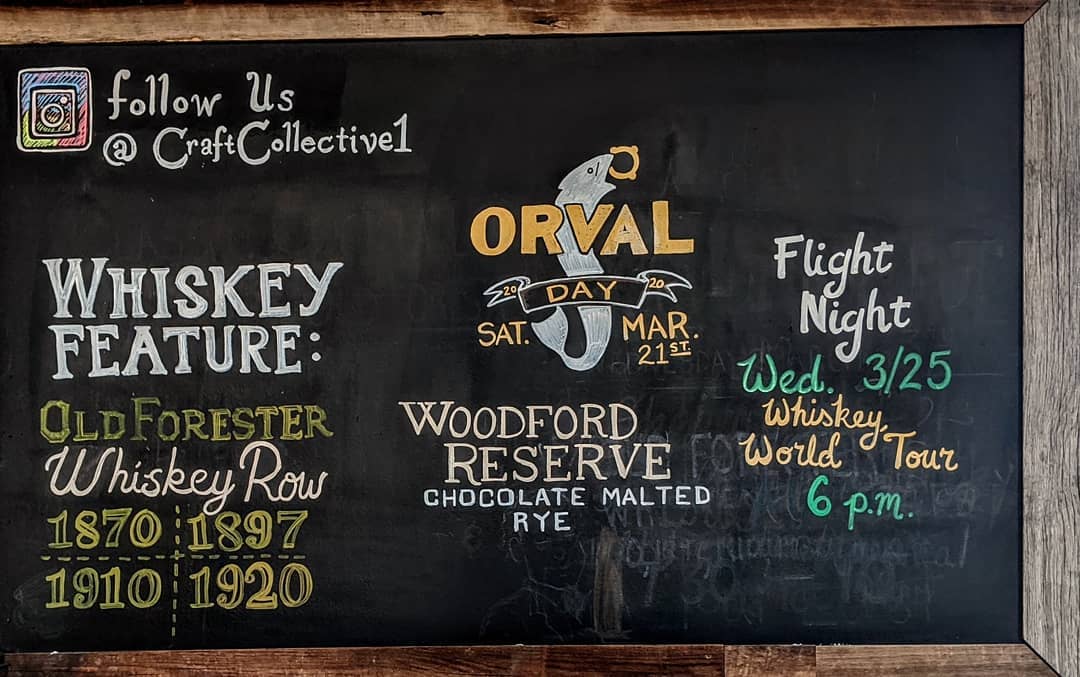 follow Us
@ CraftCollective1
WHISKEY
FEATURE:
OLD FORESTER
Whiskey Row
1870 1897
1910 1920
ORVAL
20 DAY 20
SAT. MAR.
21ST.
WOODFORD
RESERVE
CHOCOLATE MALTED
RYE
Flight
Night
Wed. 3/25
Whiskey
World Tour
6 p.m.